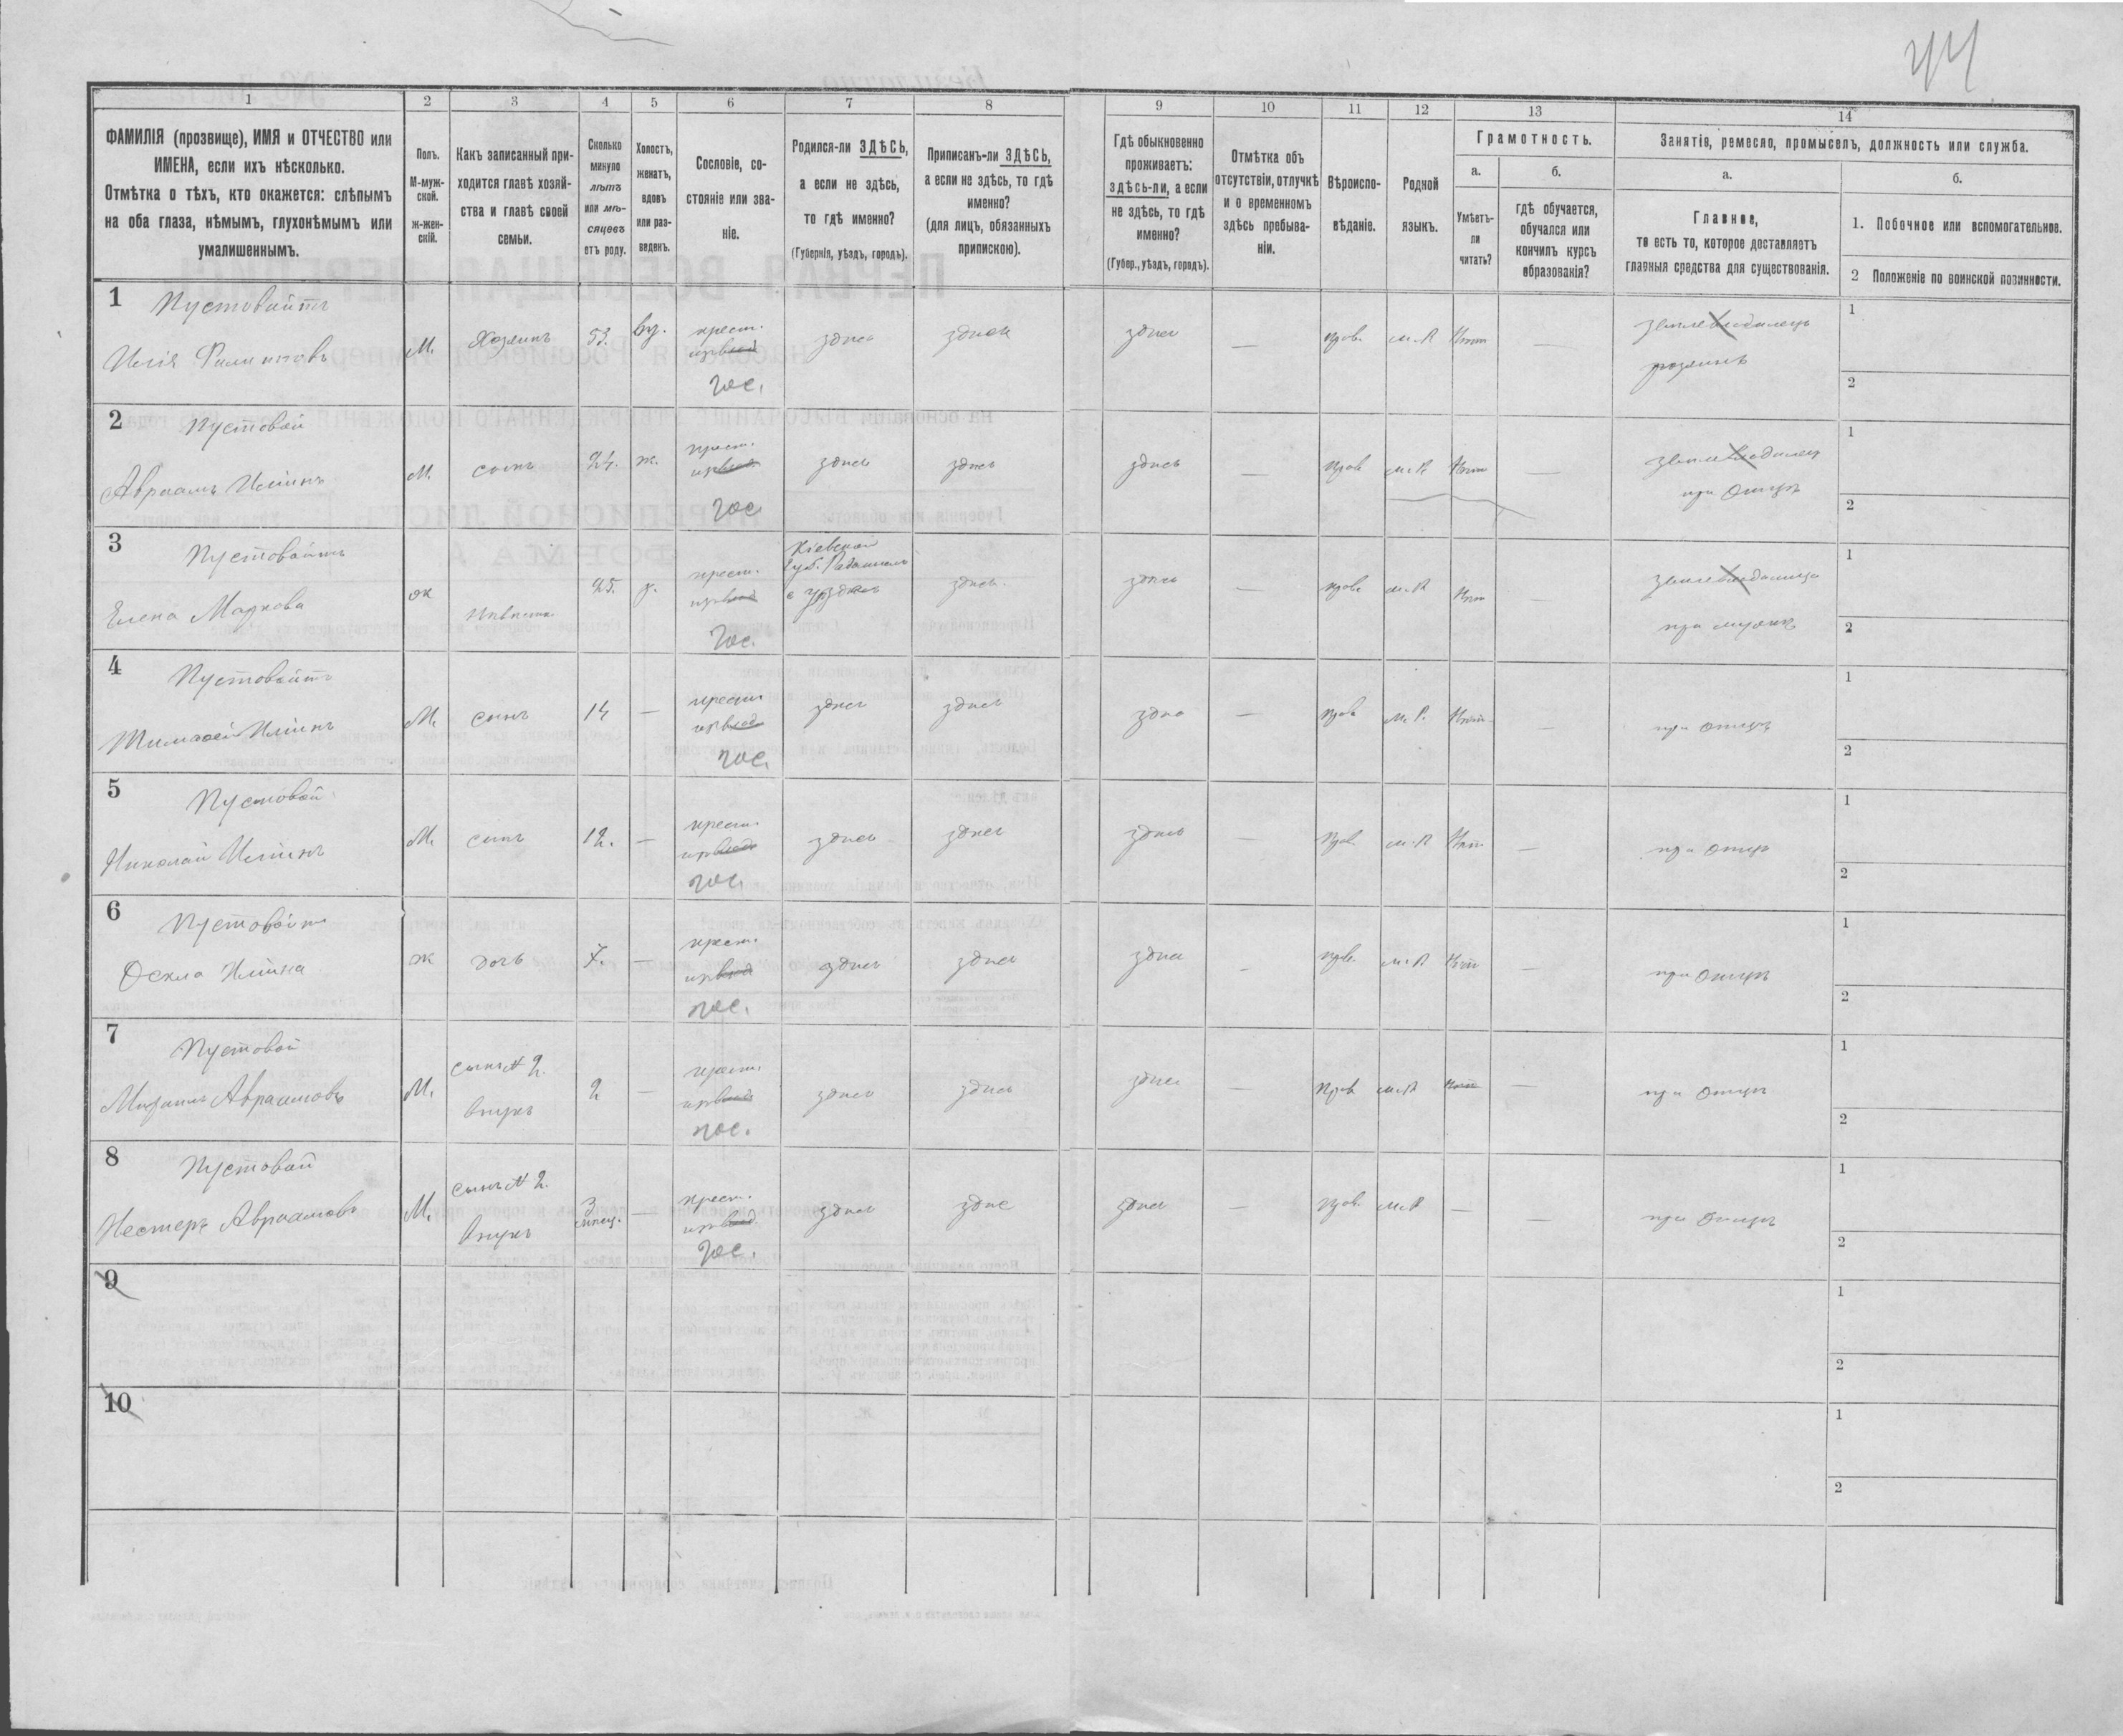 44
1
2
3
4
5
6
7
8
9
10
11
12
13
14
ФАМИЛІЯ (прозвище), ИМЯ и ОТЧЕСТВО или
ИМЕНА, если ихъ нѣсколько.
Отмѣтка о тѣхъ, кто окажется: слѣпымъ
на оба глаза, нѣмымъ, глухонѣмымъ или
умалишеннымъ.
Полъ.
М-муж-
ской.
ж-жен-
скій.
Какъ записанный при-
ходится главѣ хозяй-
ства и главѣ своей
семьи.
Сколько
минуло
лѣтъ
или мѣ-
сяцевъ
отъ роду.
Холостъ,
женатъ,
вдовъ
или раз-
веденъ.
Сословіе, со-
стояніе или зва-
ніе.
Родился-ли ЗДѢСЬ,
а если не здѣсь,
то гдѣ именно?
(Губернія, уѣздъ, городъ).
Приписанъ-ли ЗДѢСЬ,
а если не здѣсь, то гдѣ
именно?
(для лицъ, обязанныхъ
припискою).
Гдѣ обыкновенно
проживаетъ:
здѣсь-ли, а если
не здѣсь, то гдѣ
именно?
(Губер., уѣздъ, городъ).
Отмѣтка объ
отсутствіи, отлучкѣ
и о временномъ
здѣсь пребыва-
ніи.
Вѣроиспо-
вѣданіе.
Родной
языкъ.
Грамотность.
а.
Умѣетъ-
ли
читать?
б.
гдѣ обучается,
обучался или
кончилъ курсъ
образованія?
Занятія, ремесло, промыселъ, должность или служба.
а.
Главное,
то есть то, которое доставляетъ
главныя средства для существованія.
б.
1. Побочное или вспомогательное.
2 Положеніе по воинской повинности.
1 Пустовойтъ
Илія Филиповъ
М. Хозяинъ 53. вд. крест. гос. здѣсь здѣсь здѣсь — прав. м.Р нѣт —
хозяинъ
1
2
2 Пустовой
Авраамъ Иліинъ
М. сынъ 24. ж. крест. гос здѣсь здѣсь здѣсь — прав м.Р. нѣт —
при отцѣ
1
2
3 Пустовойтъ
Елена Маркова
ж Невѣстка 25. з. крест. гос.
Кіевской
губ. Радомысль
с уѣздъ
здѣсь. здѣсь — прав. м.Р нѣт —
при мужѣ
1
2
4 Пустовойтъ
Тимоѳей Иліинъ
М. сынъ 14 — крест. гос. здѣсь здѣсь здѣс — прав м.Р. нѣт — при отцѣ
1
2
5 Пустовой
Николай Иліинъ
М. сынъ 12. — крест. гос. здѣсь здѣсь здѣсь — прав. м.Р нѣт — при отцѣ
1
2
6 Пустовойт
Ѳекла Иліина
ж дочь 7. — крест. гос. здѣсь здѣсь здѣсь — прав. м.Р нѣт — при отцѣ
1
2
7 Пустовой
Михаилъ Авраамовъ
М. сынъ N 2.
внукъ
2 — крест. гос. здѣсь здѣсь здѣсь — прав м.Р нѣт — при отцѣ
1
2
8 Пустовой
Нестеръ Авраамовъ
М. сынъ N 2.
внукъ
3
мѣсяц. — крест. гос. здѣсь здѣс здѣсь — прав. м.Р — — при отцѣ
1
2
9
1
2
10
1
2